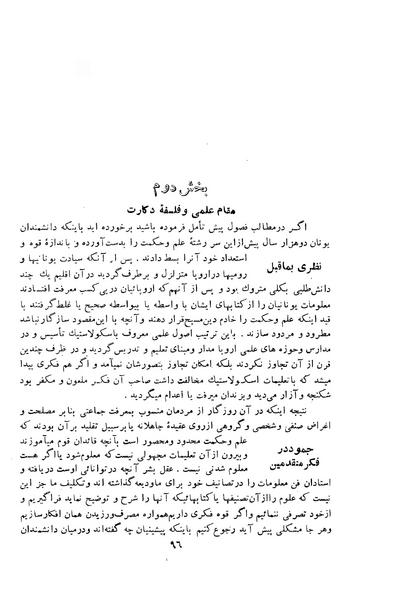 بخش دوم
مقام علمی و فلسفهٔ دکارت
اگر در مطالب فصول پیش تأمل فرموده باشید برخورده اید باینکه دانشمندان
یونان دوهزار سال پیش از این سر رشتهٔ علم و حکمت را بدست آورده و باندازهٔ قوه و
استعداد خود آنرا بسط دادند. پس از آنکه سیادت یونانیها و
نظری بماقبل
رومیها در اروپا متزلزل و برطرف گردید در آن اقلیم یک چند
دانش طلبی بکلی متروک بود و پس از آنهم که اروپائیان در پی کسب معرفت افتادند
معلومات یونانیان را از کتابهای ایشان با واسطه یا بیواسطه صحیح یا غلط گرفتند با
قید اینکه علم و حکمت را خادم دین مسیح قرار دهند و آنچه با این مقصود سازگار نباشد
مطرود و مردود سازند. باین ترتیب اصول علمی معروف باسکولاستیک تأسیس و در
مدارس و حوزه های علمی اروپا مدار و مبنای تعلیم و تدریس گردید و در ظرف چندین
قرن از آن تجاوز نکردند بلکه امکان تجاوز بتصورشان نمیآمد و اگر هم فکری پیدا
میشد که با تعلیمات اسکولاستیک مخالفت داشت صاحب آن فکر ملعون و مکفر بود
شکنجه و آزار میدید و بزندان میرفت یا اعدام میگردید.
نتیجه اینکه در آن روزگار از مردمان منسوب بمعرفت جماعتی بنابر مصلحت و
اغراض صنفی و شخصی و گروهی از روی عقیدهٔ جاهلانه یا بر سبیل تقلید بر آن بودند که
علم و حکمت محدود و محصور است بآنچه قائدان قوم میآموزند
جمود در
فکر متقدمین
و بیرون از آن تعلیمات مجهولی نیست که معلوم شود یا اگر هست
معلوم شدنی نیست. عقل بشر آنچه در توانائی اوست دریافته و
استادان فن معلومات را در تصانیف خود برای ما ودیعه گذاشته اند و تکلیف ما جز این
نیست که علوم را از آن تصنیفها یا کتابهائیکه آنها را شرح و توضیح نماید فرا گیریم و
از خود تصرفی ننمائیم و اگر قوه فکری داریم همواره مصرف ورزیدن همان افکار سازیم
و هر جا مشکلی پیش آید رجوع کنیم باینکه پیشینیان چه گفته اند و در میان دانشمندان
۹۶